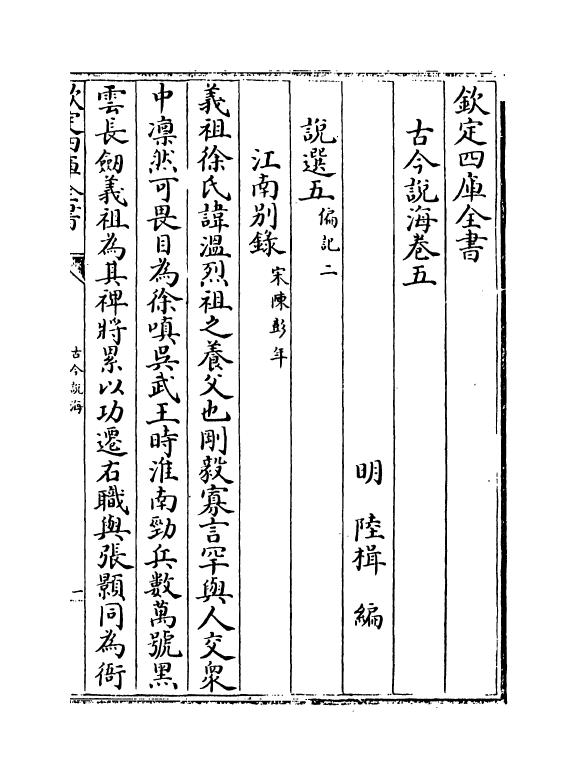 欽定四庫全書
古今說海卷五
明 陸楫 編
說選五 偏記二
江南別錄 宋陳彭年
義祖徐氏諱溫烈祖之養父也剛毅寡言罕與人交衆
中凜然可畏目為徐嗔吳武王時淮南勁兵數萬號黑
雲長劒義祖為其禆將累以功遷右職與張顥同為衙
欽定四庫全書
古今說海
一